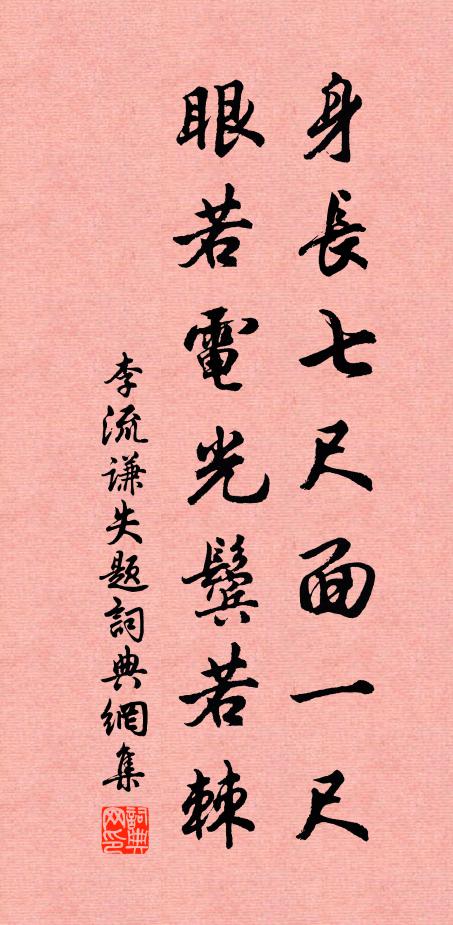 身長七尺面一尺
眼若電光鬓若棘
李流谦失题詞典網集
詞典网印